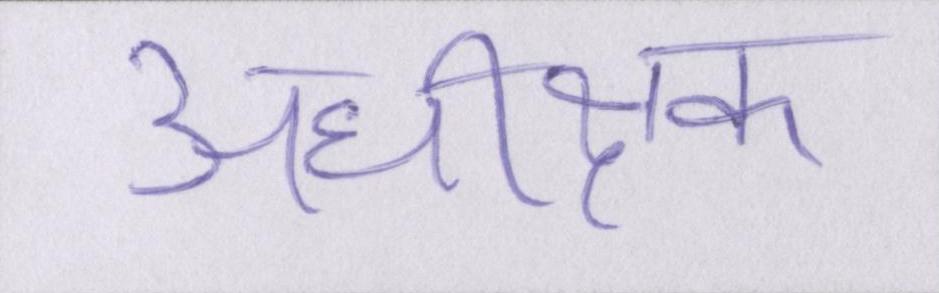 अधीक्षक